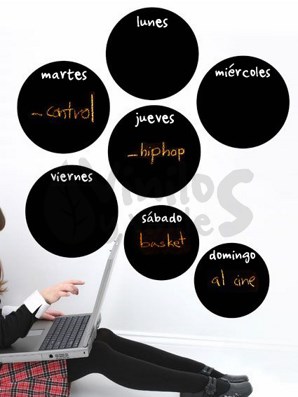 lunes
martes
- control
miércoles
jueves
- hiphop
viernes
sábado
basket
domingo
al cine